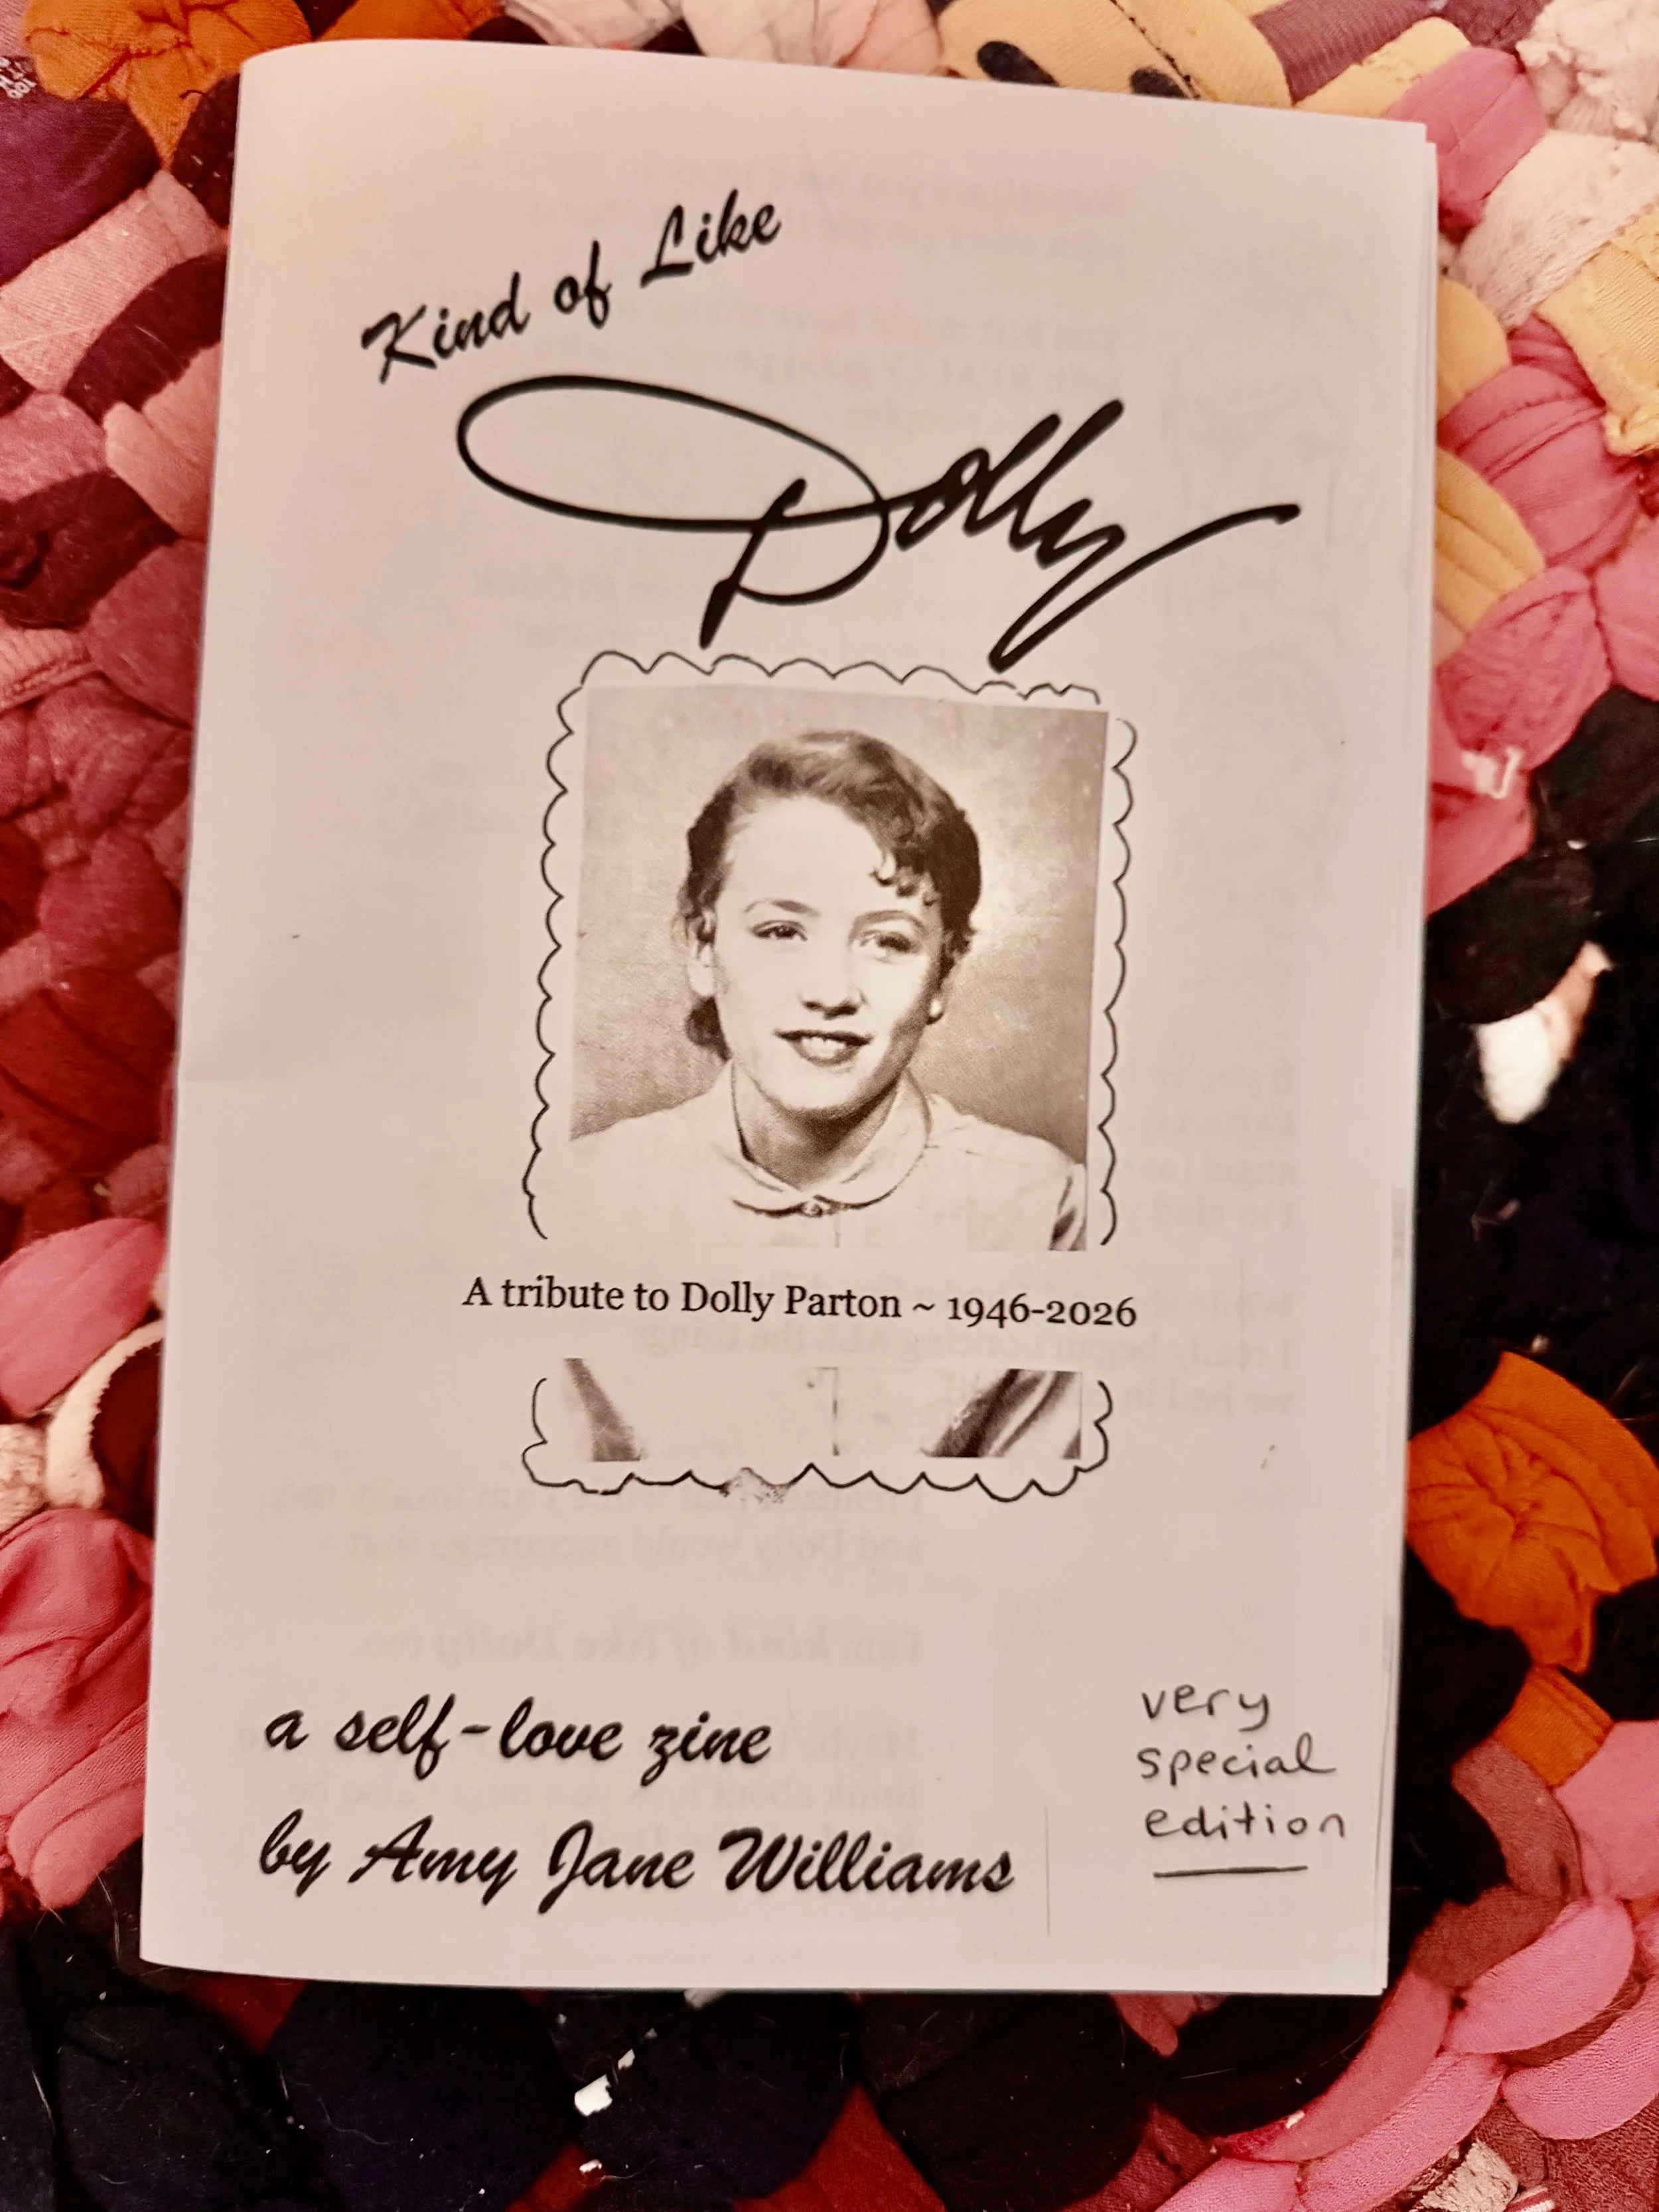 Kind of Like
Dolly
A tribute to Dolly Parton ~ 1946-2026
a self-love zine
by Amy Jane Williams
very
special
edition